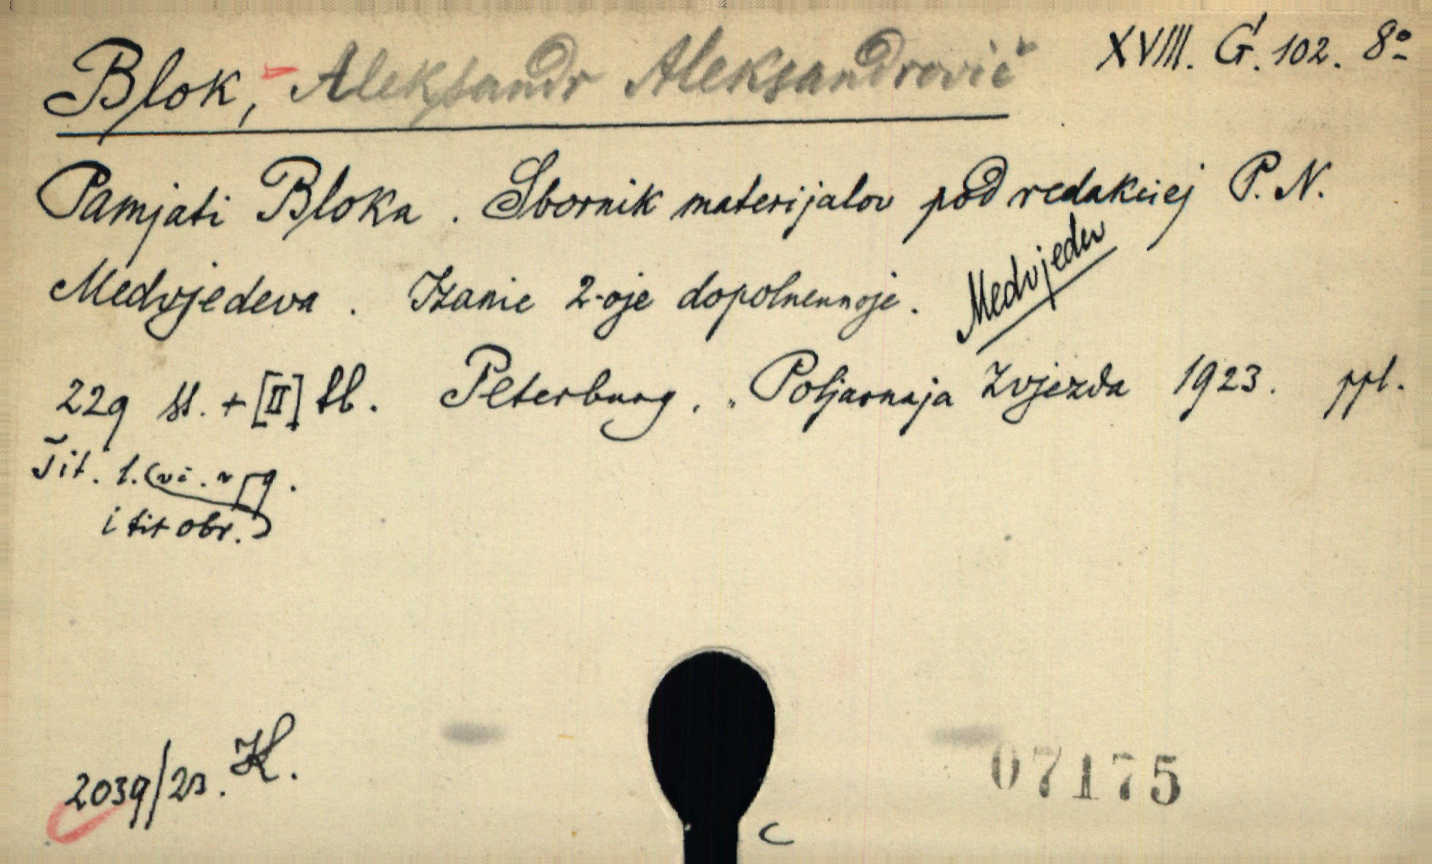 Blok, Aleksandr Aleksandrovič
XVIII. G. 102. 8º
Pamjati Bloka. Sbornik materijalov pod redakciej P. N.
Medvjedeva. Izanie 2-oje dopolnennoje. Medvjedev
229 st. + [II] tbl. Peterburg, „Poljarnaja Zvjezda 1923. ppl.
Tit. l.
i tit obr.)
2039/23. K.
07175